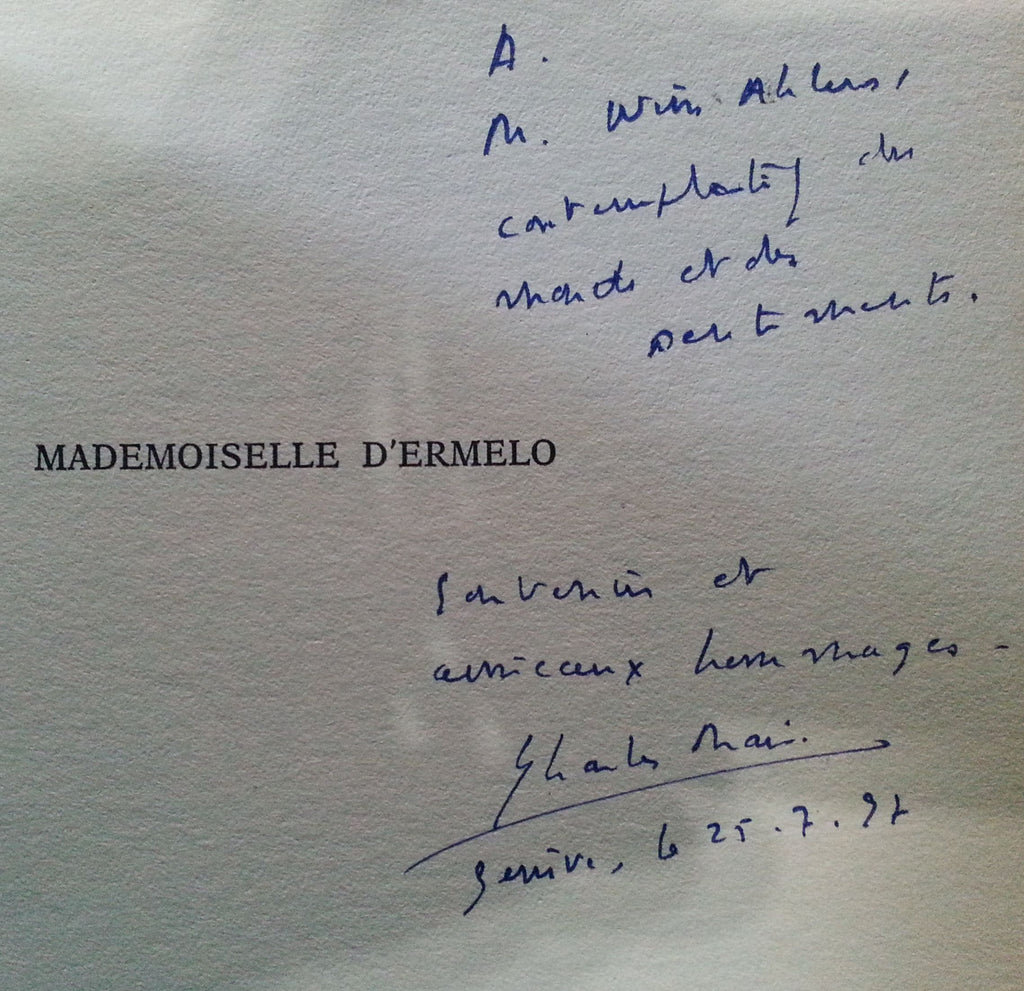 A.
M. Wim Ahlers,
contemplatif du
monde et des
sentiments.
MADEMOISELLE D'ERMELO
Souvenir et
amicaux hommages -
Charles
Genève, le 25.7.97